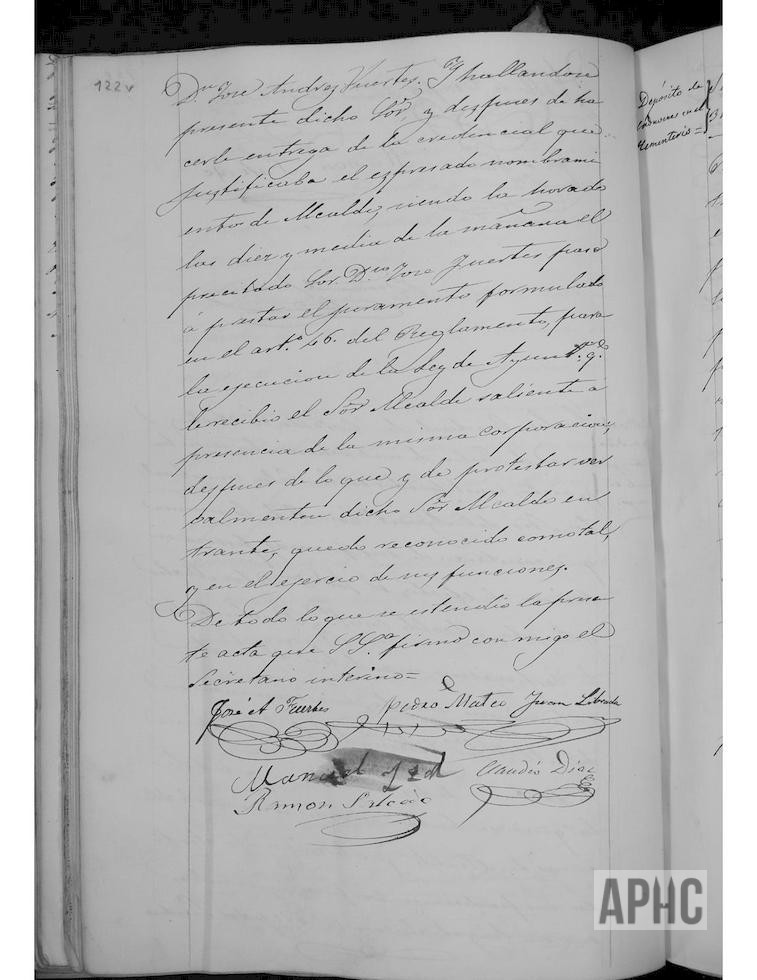 122v
Dn. Jose Andres Fuertes. Y hallandose
presente dicho Sor, y despues de ha
cerle entrega de la credencial que
justificaba el espresado nombrami
ento de Alcalde, siendo la hora de
las diez y media de la mañana el
precitado Sor. Dn. Jose Fuertes paso
á prestar el juramento formulado
en el arto. 46. del Reglamento, para
la ejecucion de la Ley de Ayunto. q.e
le recibio el Sor Alcalde saliente á
presencia de la misma corporacion,
despues de lo que y de protestar ver
balmente dicho Sor Alcalde en
trante, quedo reconocido como tal,
y en el ejercio de sus funciones.
De todo lo que se estendio la presen
te acta que S. Sa. firmó con migo el
Secretario interino=
José A Fuertes Pedro Mateo Juan Librada
Manuel Claudio Diaz
Ramon Salcedo
Depósito de
cadaveres en el
Cementerio=
APHC